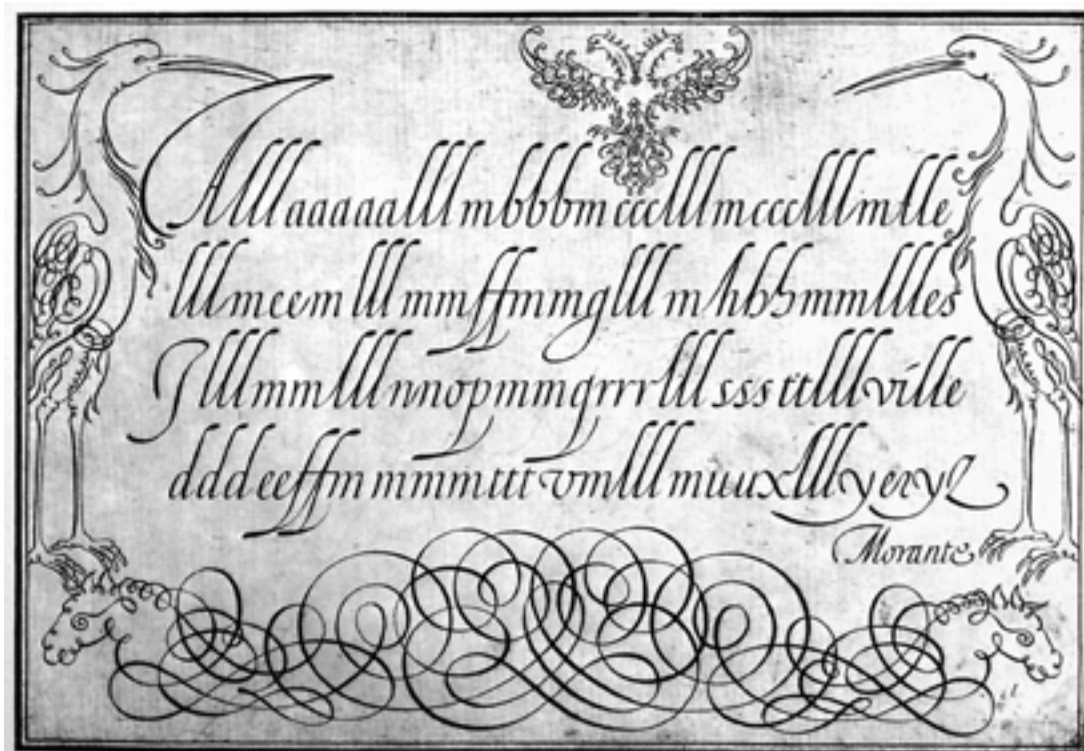 Alllaaaaalllmbbbmccclllmccclllmtlle
lllmccmlllmmffmmglllmhbhmmlllles
Jlllmmlllnnopmmqrrrlllsssttlllville
dddeeffmmmmtttvmlllmuuxlllyeryz
Morante